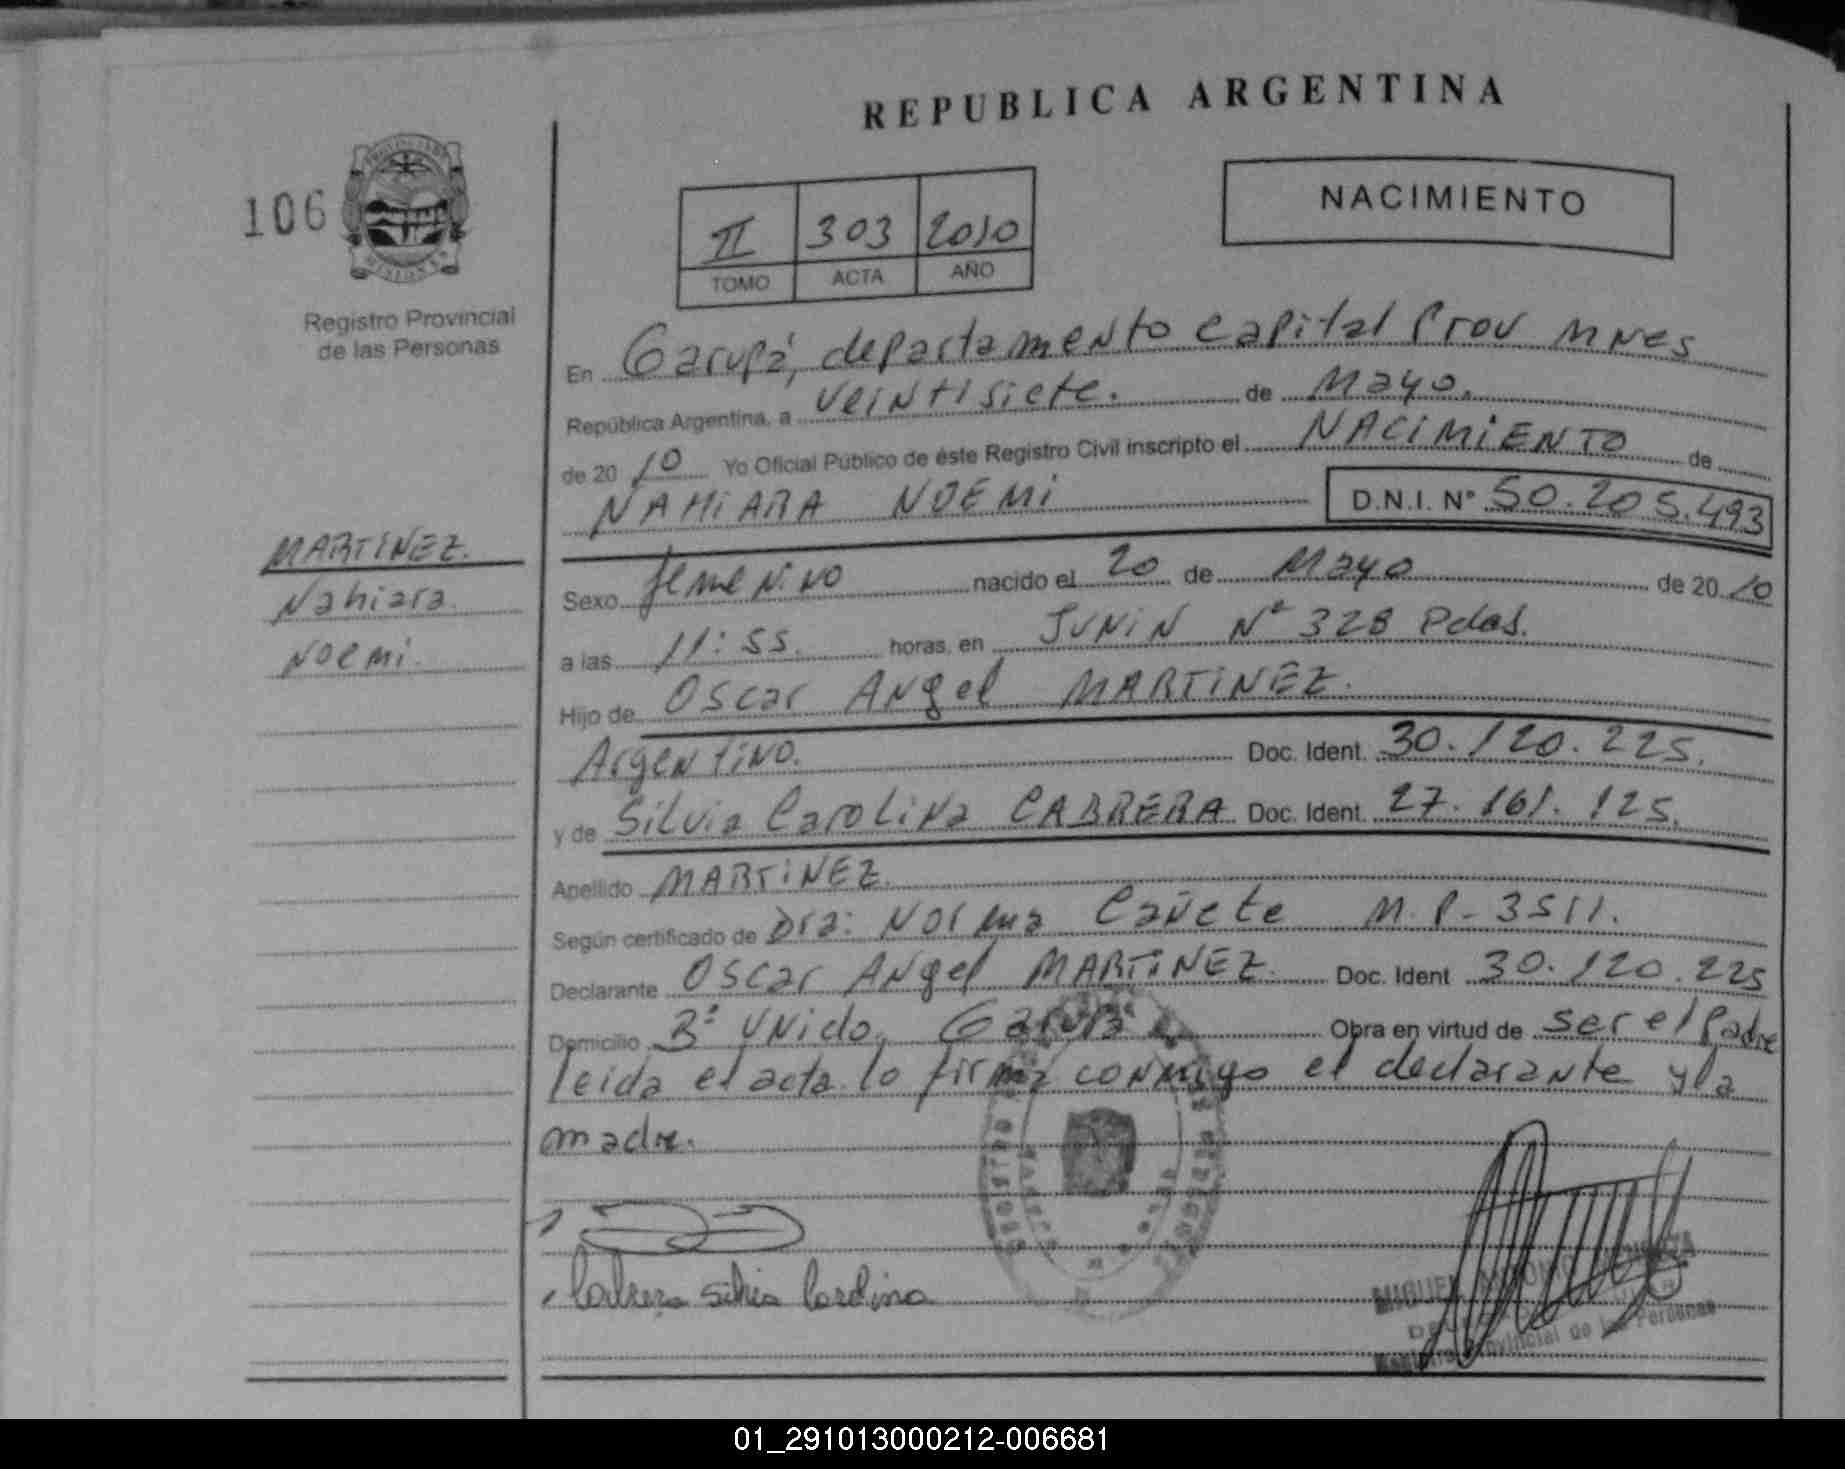 REPUBLICA ARGENTINA
106
NACIMIENTO
II 303 2010
TOMO ACTA AÑO
Registro Provincial
de las Personas
En Garupá, departamento Capital Prov MNES
República Argentina, a veintisiete. de Mayo.
de 20 10 Yo Oficial Público de éste Registro Civil inscripto el NACIMIENTO de
NAHIARA NOEMI D.N.I. N° 50.205.493
MARTINEZ.
Nahiara
Noemi.
Sexo femenino nacido el 20 de Mayo de 20 10
a las 11:55. horas, en JUNIN N° 328 Pdas.
Hijo de Oscar Angel MARTINEZ.
Argentino. Doc. Ident. 30.120.225.
y de Silvia Carolina CABRERA Doc. Ident. 27.161.125.
Apellido MARTINEZ.
Según certificado de Dra: Norma Cañete M.P-3511.
Declarante Oscar Angel MARTINEZ. Doc. Ident 30.120.225
Domicilio B° Unido, Garupá Obra en virtud de ser el Padre
leida el acta lo firma conmigo el declarante y la
madre.
Cabrera Silvia Carolina
MIGUEL ANTONIO
Provincial de las Personas
01_291013000212-006681